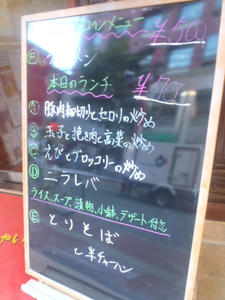 メニュー ¥500
本日のランチ ¥700
Ⓐ 豚肉細切りとセロリの炒め
Ⓑ 玉子と挽き肉と高菜の炒め
Ⓒ えびとブロッコリーの炒め
Ⓓ ニラレバ
ライス、スープ、漬物、小鉢、デザート付き
Ⓔ とりそば
と半チャーハン